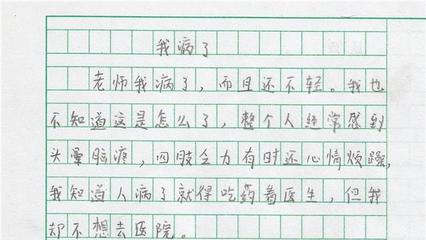 我病了
老师我病了，而且还不轻。我也
不知道这是怎么了，整个人经常感到
头晕脑疼，四肢乏力有时还心情烦躁，
我知道人病了就得吃药着医生，但我
却不想去医院。